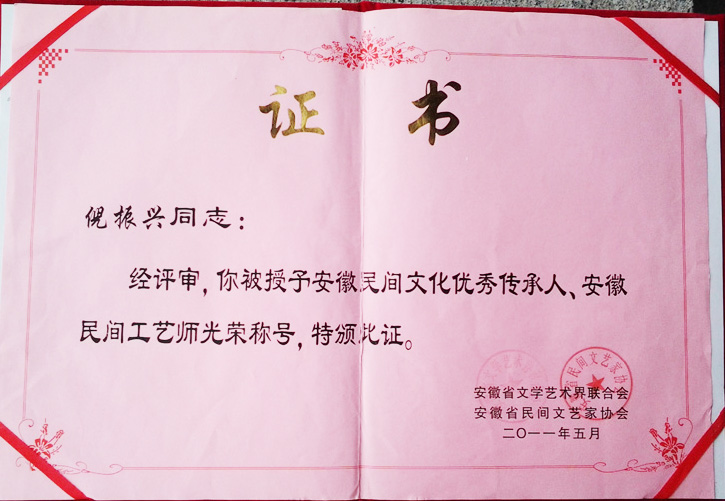 证 书
倪振兴同志：
经评审，你被授予安徽民间文化优秀传承人、安徽
民间工艺师光荣称号，特颁此证。
安徽省文学艺术界联合会
安徽省民间文艺家协会
二〇一一年五月